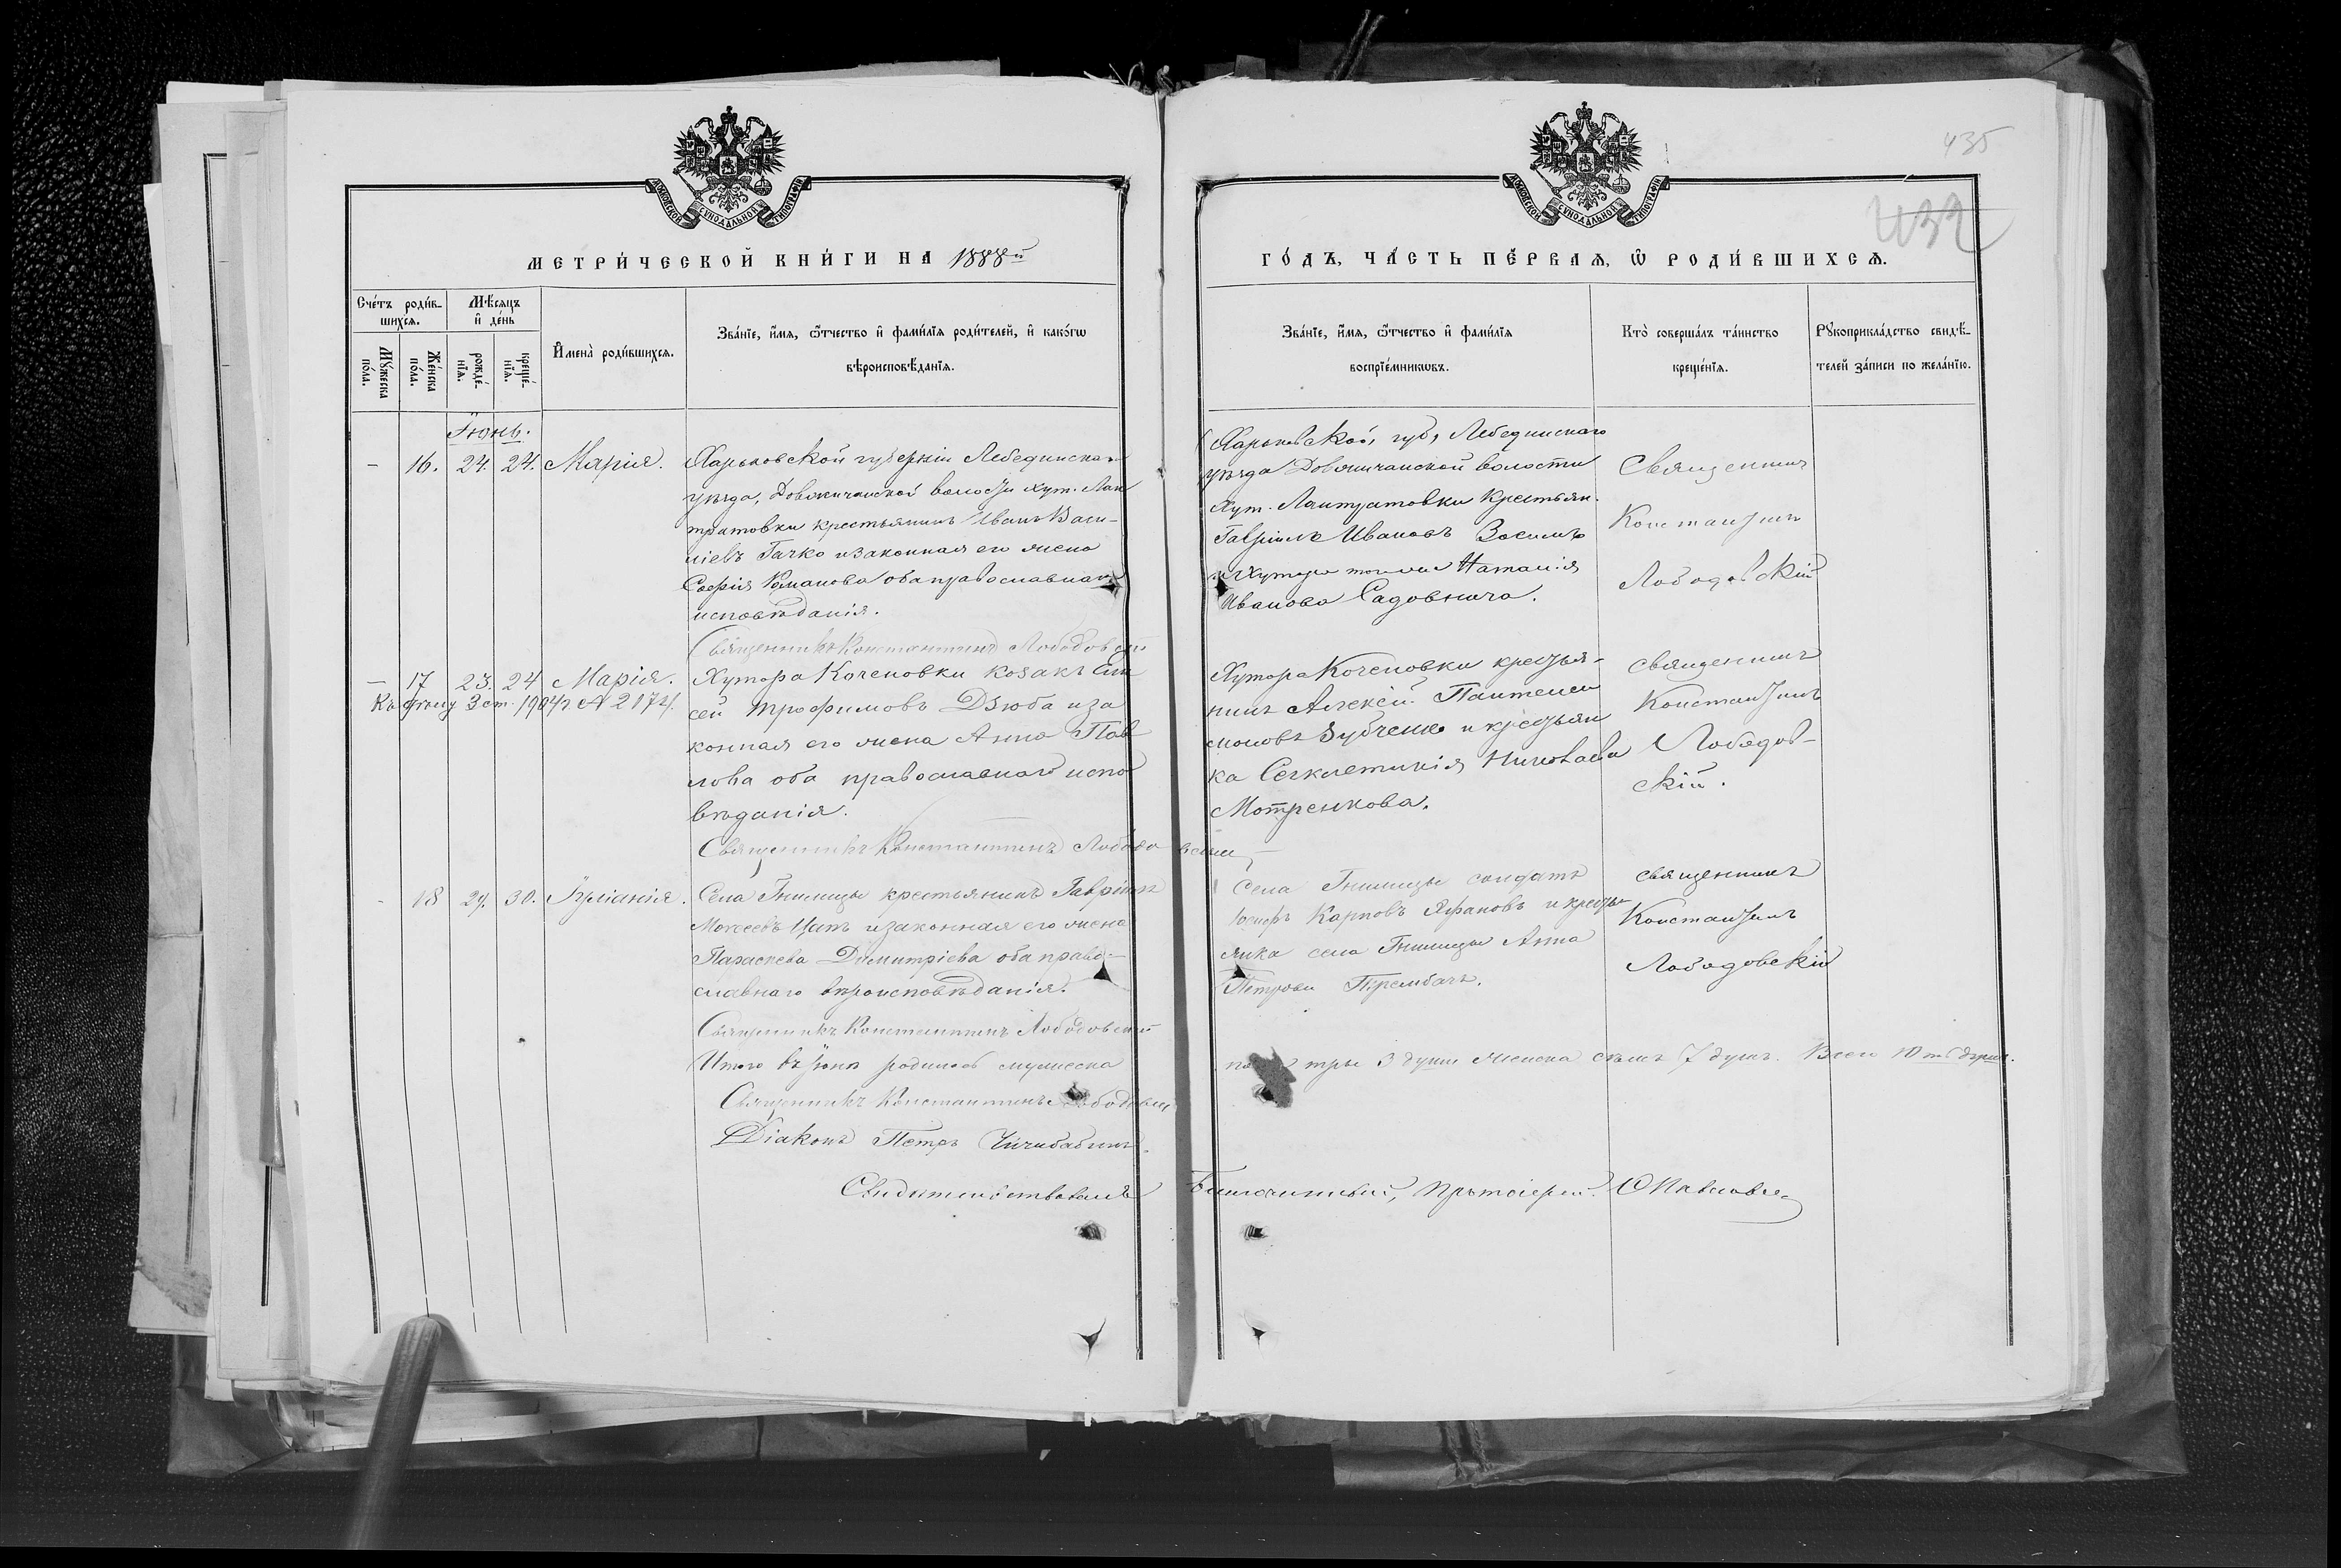 435
432
МОСКОВСКОЙ СѴНОДАЛЬНОЙ ТИПОГРАФІИ
МОСКОВСКОЙ СѴНОДАЛЬНОЙ ТИПОГРАФІИ
МЕТРИ́ЧЕСКОЙ КНИ́ГИ НА 1888й
ГО́ДЪ, ЧА́СТЬ ПЕ́РВАЯ, Ѡ҆ РОДИ́ВШИХСЯ.
Сче́тъ роди́вшихся.
Мꙋ́жеска по́ла.
Же́нска по́ла.
Мѣ́сяцъ и҆ де́нь
рожде́нїя.
креще́нїя.
И҆мена̀ роди́вшихся.
Зва́нїе, и҆́мя, ѻ҆́тчество и҆ фами́лїя роди́телей, и҆ како́гѡ
вѣроисповѣ́данїя.
Зва́нїе, и҆́мя, ѻ҆́тчество и҆ фами́лїя
воспрїе́мникѡвъ.
Кто̀ соверша́лъ та́инство
креще́нїя.
Рꙋкоприкла́дство свидѣ́-
телей за́писи по жела́нїю.
Іюнь.
- 16. 24. 24. Марія.
Харьковской губерніи Лебединскаго
уѣзда, Должичанской волости хут. Лан
тратовки крестьянинъ Иванъ Васи-
ліевъ Гачко и законная его жена
Софія Романова оба православнаго
исповѣданія.
Священникъ Константинъ Лободовскій
Харьковской, губ, Лебединскаго
уѣзда Должичанской волости
хут. Лантратовки крестьян.
Гавріилъ Ивановъ
и хутора Наталія
Иванова Садовнича.
Священникъ
Константинъ
Лободовскій
- 17 23. 24 Марія.
Къ ст. 1904г № 2174.
Хутора Коченовки козакъ Ели
сей Трофимовъ Дзюба и за
конная его жена Анна Пав
лова оба православнаго испо
вѣданія.
Священникъ Константинъ Лободовскій
Хутора Коченовки крестья-
нинъ Алексій Пантелеи
моновъ Зубченко и крестьян
ка Секлетикія Николаева
Мотренкова.
священникъ
Константинъ
Лободов-
скій.
- 18 29. 30. Іуліанія.
Села Гнилицы крестьянинъ Гавріилъ
Моисеевъ и законная его жена
Параскева Димитріева оба право-
славнаго вѣроисповѣданія.
Священникъ Константинъ Лободовскій
Села Гнилицы солдатъ
Іосифъ Карповъ и кресть
янка села Гнилицы Анна
Петрова
священникъ
Константинъ
Лободовскій
Итого въ Іюнѣ родилось мужеска
три 3 души женска семь 7 душъ. Всего 10ть душъ.
Священникъ Константинъ Лободовскій
Діаконъ Петръ Чичибабинъ.
Свидѣтельствовалъ Благочинный, Протоіерей